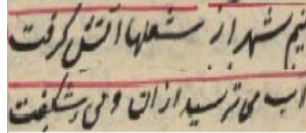 نیم شهر از شعلها آتش گرفت
آب می ترسید ازان و می شکفت